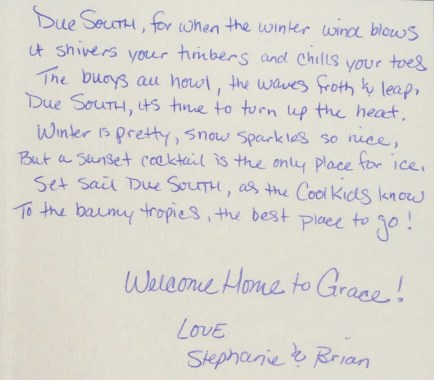 Due South, for when the winter wind blows
it shivers your timbers and chills your toes
The buoys all howl, the waves froth & leap,
Due South, its time to turn up the heat.
Winter is pretty, snow sparkles so nice,
But a sunset cocktail is the only place for ice.
Set sail Due South, as the Cool Kids know
To the balmy tropics, the best place to go!
Welcome Home to Grace!
Love
Stephanie & Brian